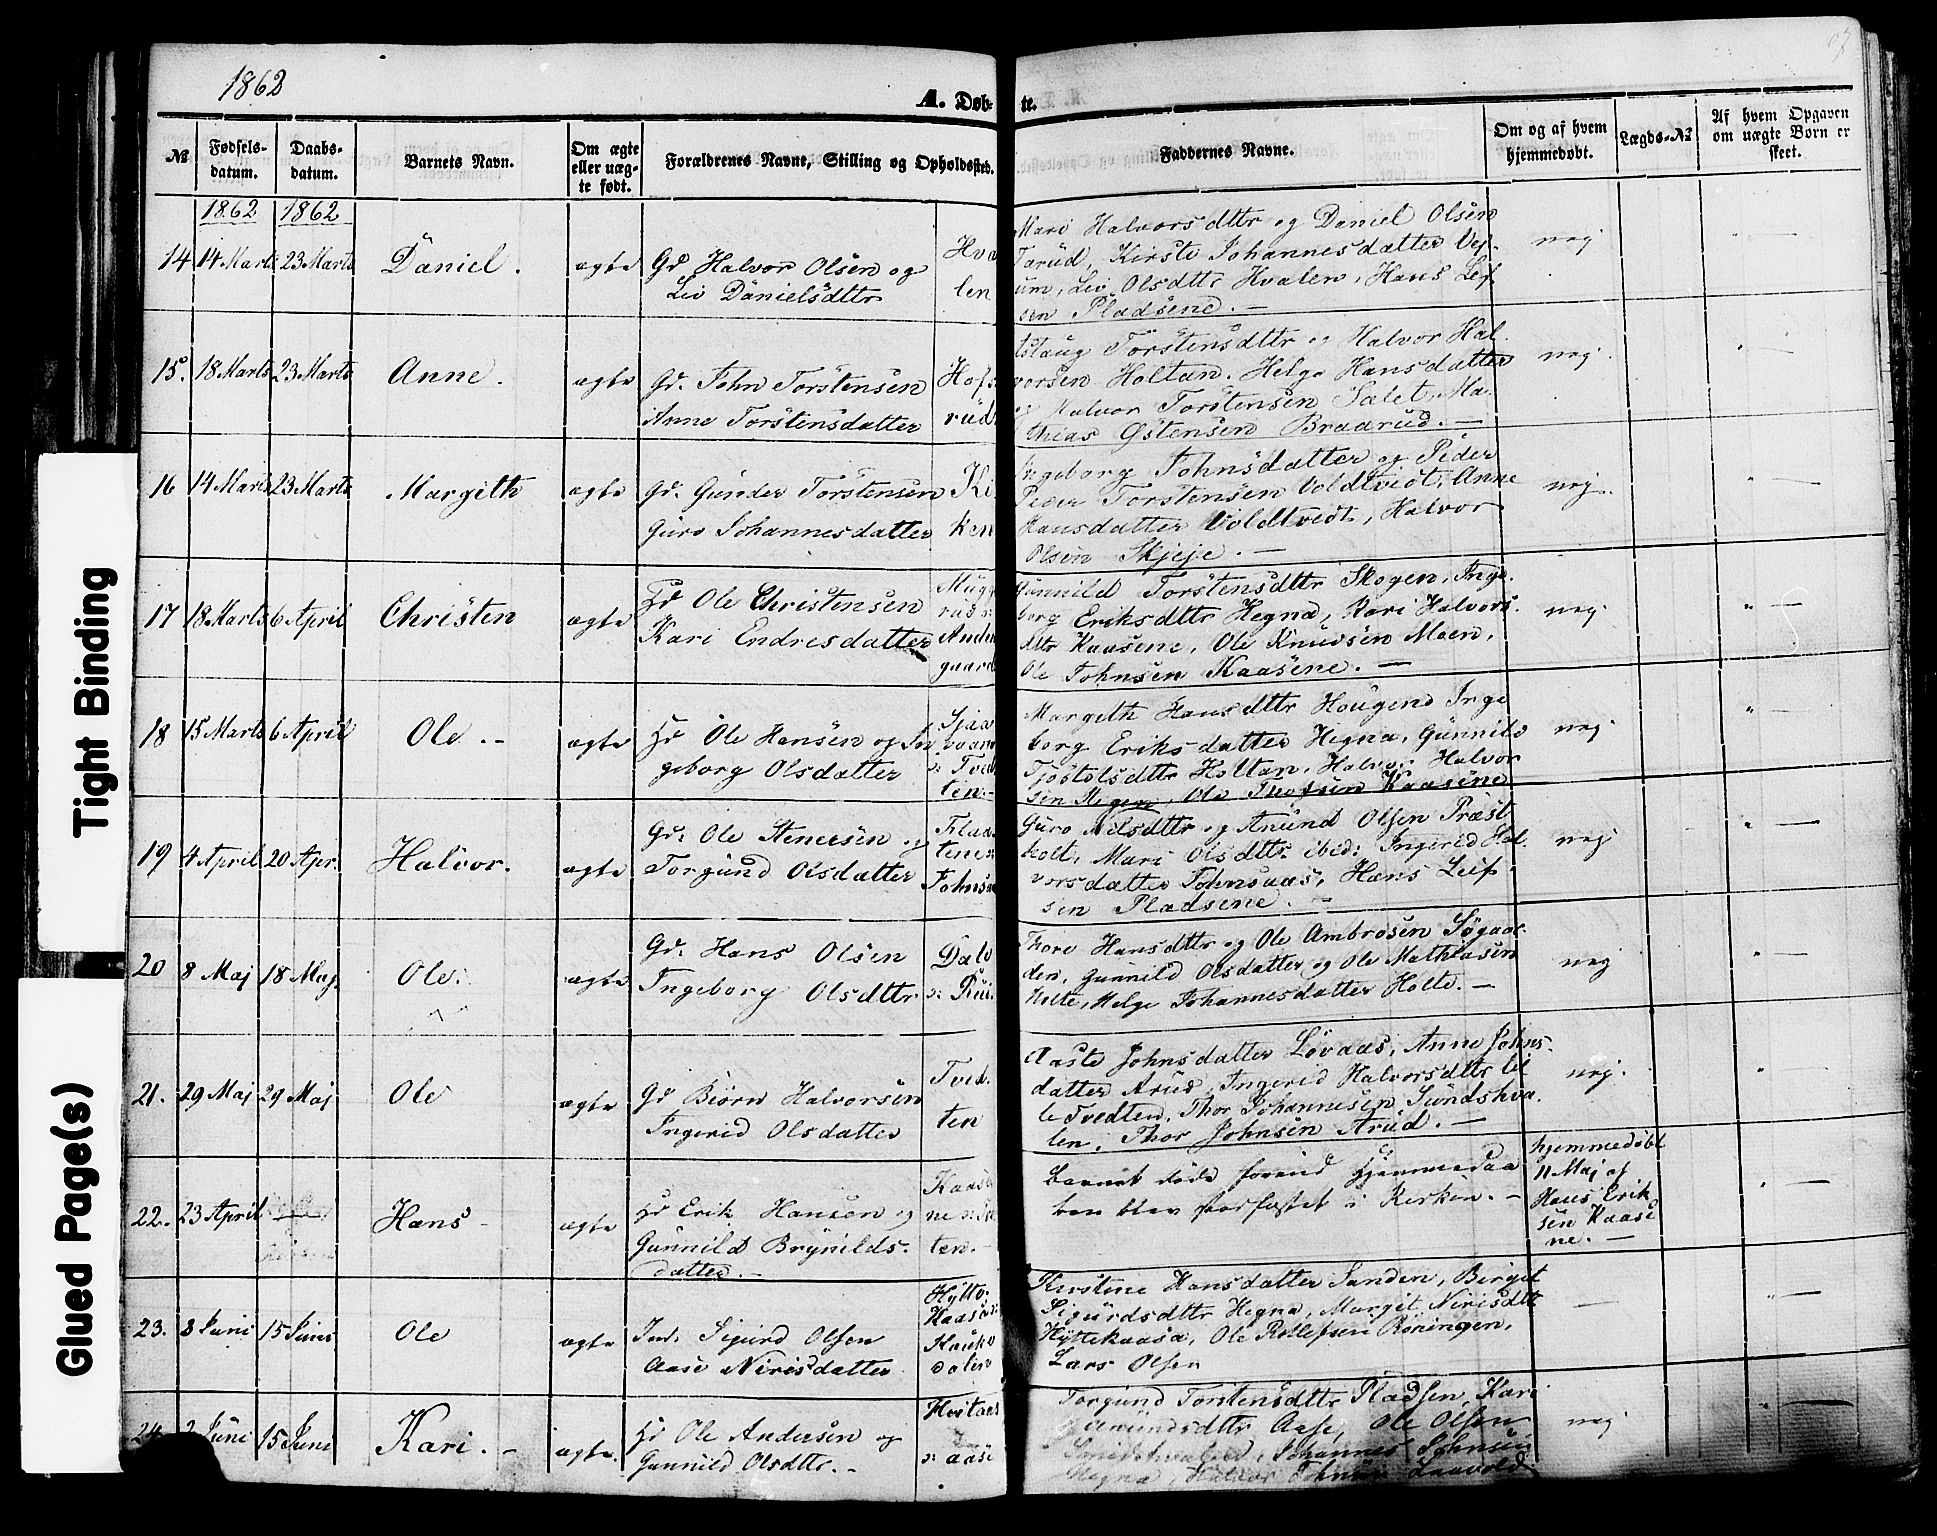 1862
A. Døb-
te.
№
Fødsels-
datum.
Daabs-
datum.
Barnets Navn.
Om ægte
eller uæg-
te født.
Forældrenes Navne, Stilling og Opholdssted.
Faddernes Navne.
Om og af hvem
hjemmedøbt.
Lægds-№
Af hvem Opgaven
om uægte Børn er
skeet.
1862 1862
14 14 Marts 23 Marts Daniel. ægte
Gd Halvor Olsen og
Liv Danielsdttr
Hva
len
Mari Halvorsdttr og Daniel Olsen
Tarud, Kirsti Johannesdatter Ve-
um, Liv Olsdttr Hvalen, Hans Leif
sen Pladsene. —
nej
15. 18 Marts 23 Marts Anne. ægte
Gd. John Torstensen
Anne Torstensdatter
Hofs
rud
Aslaug Torstensdttr og Halvor Hal-
vorsen Holtan. Helge Hansdatter
og Halvor Torstensen Salet, Ma-
thias Østensen Braarud. —
nej
16 14 Marts 23 Marts Margith ægte
Gd. Gunder Torstensen
Guro Johannesdatter
Ki
ken
Ingeborg Johnsdatter og Peder
Peder Torstensen Voldtvedt, Anne
Hansdatter Voldtvedt, Halvor
Olsen Skjeje. —
nej
17 18 Marts 6 April Christen ægte
Hd Ole Christensen
Kari Endresdatter
Mugg
rud
gaard
Gunnild Torstensdttr Skogen, Inge-
borg Eriksdttr Hegna, Kari Halvors-
dttr Kaasene, Ole Knudsen Moen,
Ole Johnsen Kaasene. —
nej
18 15 Marts 6 April Ole. — ægte
Hd Ole Hansen og In
geborg Olsdatter
Tved
ten. —
Margith Hansdttr Hougend Inge
borg Eriksdatter Hegna, Gunnild
Tjostolsdttr Holtan, Halvor Halvor
sen Hegna, Ole Kaasene
nej
19 4 April 20 Apr. Halvor. ægte
Gd: Ole Stenersen og
Torgund Olsdatter
Flaa
tene
Johns
Guro Nilsdttr og Anund Olsen Præst
holt, Mari Olsdttr ibid: Ingerid Hal-
vorsdatter Johnsaas, Hans Leif-
sen Pladsene. —
nej
20 8 Maj 18 Maj Ole. ægte
Gd. Hans Olsen
Ingeborg Olsdttr
Dalv
Thore Hansdttr og Ole Ambrosen Søgaar
den, Gunnild Olsdatter og Ole Mathiasen
Holte, Helge Johannesdatter Holte. —
nej
21. 29 Maj 29 Maj Ole ægte
Gd Biørn Halvorsen
Ingerid Olsdatter
Tved.
ten
Aaste Johnsdatter Løvaas, Anne Johns-
datter Arud, Ingerid Halvorsdttr lil
le Tvedten, Thor Johannesen Sundshva-
len, Thor Johnsen Arud. —
nej
22. 23 April Hans ægte
Hd Erik Hansen og
Gunnild Brynilds-
datter. —
Kaas
ne
ten. —
barnet døde forind hjemmedaa
ben blev stadfæstet i Kirken. —
hjemmedøbt
11 Maj af
Hans Erik
sen Kaase
ne. —
23. 8 Juni 15 Juni Ole ægte
Ind: Sigurd Olsen
Aase Nirisdatter
Hytte
Kaasa
Hauk
dalen
Kirstine Hansdatter Sanden, Birgit
Sigurdsdttr Hegna, Margit Nirisdttr
Hyttekaasa, Ole Rollefsen Røningen,
Lars Olsen
24. 2 Juni 15 Juni Kari. — ægte
Hd Ole Andersen og
Gunnild Olsdttr. —
aase
Torgund Torstensdttr Pladsen, Kari
Amundsdttr Aase, Ole Olsen
Johannes Johnsen
Hegna, Halvor Johnsen
nej
Tight Binding
Glued Page(s)